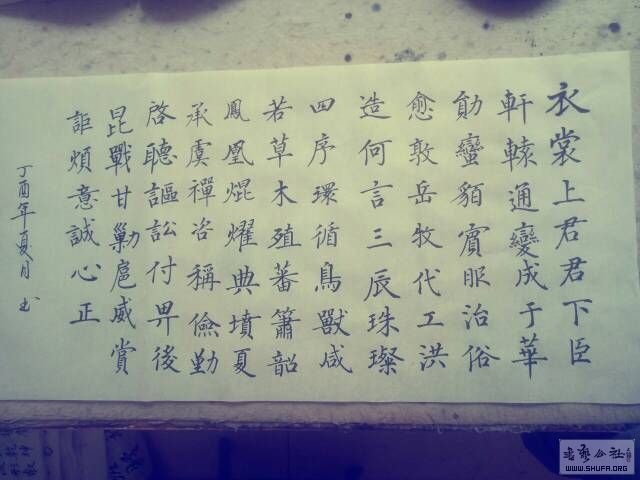 衣裳上君君下臣
軒轅通變成于華
勛蠻貊賓服治俗
愈敦岳牧代工洪
造何言三辰珠璨
四序環循鳥獸咸
若草木殖蕃簫韶
鳳凰焜耀典墳夏
承虞禪咨稱儉勤
啓聽謳訟付畀後
昆戰甘勦扈威賞
詎煩意誠心正
丁酉年夏月书
WWW.SHUFA.ORG